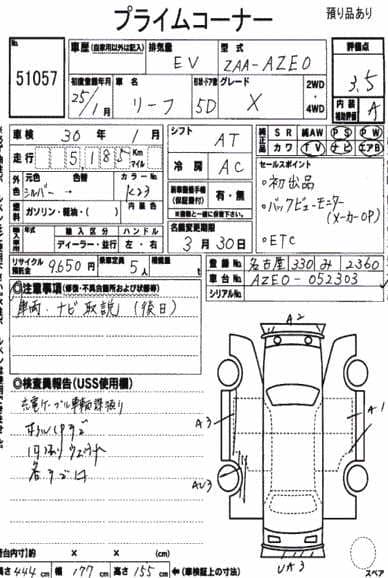 プライムコーナー
預り品あり
No. 51057
車歴 (自家用以外は記入)
排気量 EV
型式 ZAA-AZE0
評価点 3.5
初度登録年月 25年/1月
車名 リーフ
ドア数 5D
グレード X
2WD・4WD
内装補助評価 A
車検 30年 1月
シフト AT
純正品 SR 純AW PS PW
カワ TV ナビ エアB
走行 5,185 Km マイル
冷房 AC
セールスポイント
・初出品
・バックビューモニター
(メーカーOP)
・ETC
外色 元色 シルバー → 色替
カラーNo K23
有・無
燃料 ガソリン・軽油・( )
内装色
輸入区分 ハンドル
ディーラー・並行 左・右
名義変更期限
3月30日
リサイクル預託金 9650円
乗車定員 5人
積載量 t
登録No. 名古屋 330 み 2360
車台No. AZE0-052303
シリアルNo.
◎注意事項(修復・不具合箇所および状態等)
車両、ナビ取説 (後日)
◎検査員報告(USS使用欄)
充電ケーブル車輌預り
A2
A3
A1
AU3
UA3
スペア
荷台内寸 約 × × (cm)
長さ 444cm 幅 177cm 高さ 155cm ←(車検証上の寸法)